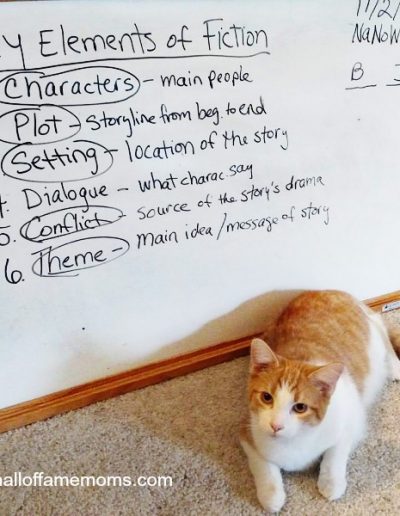 y Elements of Fiction
11/2
NaNoW
B
Characters - main people
Plot - storyline from beg. to end
Setting - location of the story
4. Dialogue - what charac. say
5. Conflict - source of the story's drama
6. Theme - main idea/message of story
halloffamemoms.com